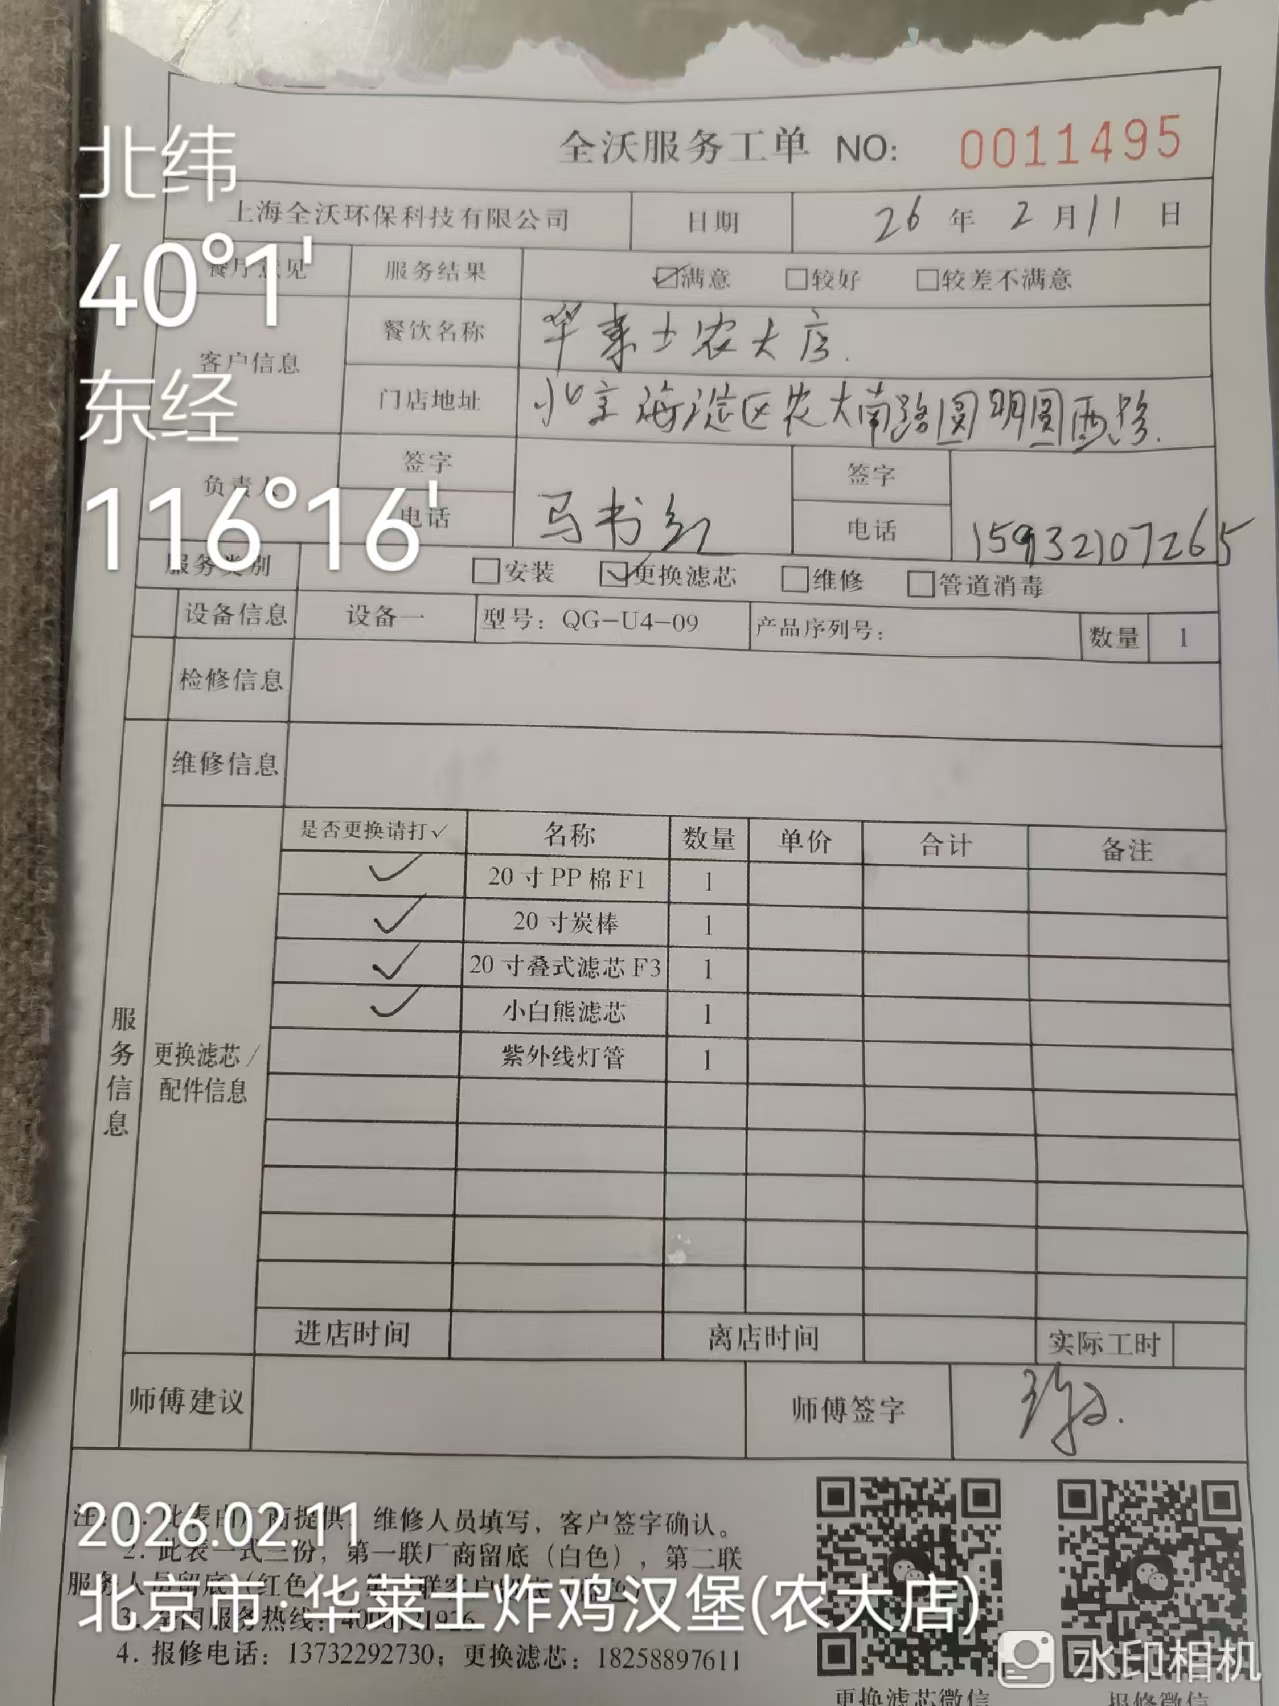 全沃服务工单 NO: 0011495
上海全沃环保科技有限公司 日期 26 年 2 月 11 日
餐厅意见 服务结果 ☑满意 □较好 □较差不满意
客户信息 餐饮名称 华莱士农大店.
门店地址 北京海淀区农大南路圆明园西路.
负责人 签字 马书红 签字
电话 电话 15932107265
服务类别 □安装 ☑更换滤芯 □维修 □管道消毒
设备信息 设备一 型号：QG-U4-09 产品序列号： 数量 1
检修信息
维修信息
服务信息
更换滤芯/配件信息
是否更换请打✓ 名称 数量 单价 合计 备注
✓ 20寸PP棉F1 1
✓ 20寸炭棒 1
✓ 20寸叠式滤芯F3 1
✓ 小白熊滤芯 1
紫外线灯管 1
进店时间 离店时间 实际工时
师傅建议 师傅签字
注：1. 此表由厂商提供，维修人员填写，客户签字确认。
2. 此表一式三份，第一联厂商留底（白色），第二联
服务人员留底（红色），
3. 全国服务热线：
4. 报修电话：13732292730；更换滤芯：18258897611
更换滤芯微信 报修微信
北纬
40°1'
东经
116°16'
2026.02.11
北京市·华莱士炸鸡汉堡(农大店)
水印相机